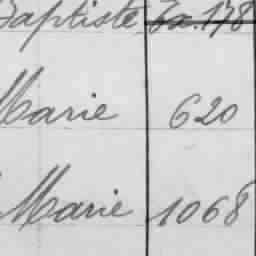 Baptiste 178
Marie 620
Marie 1068